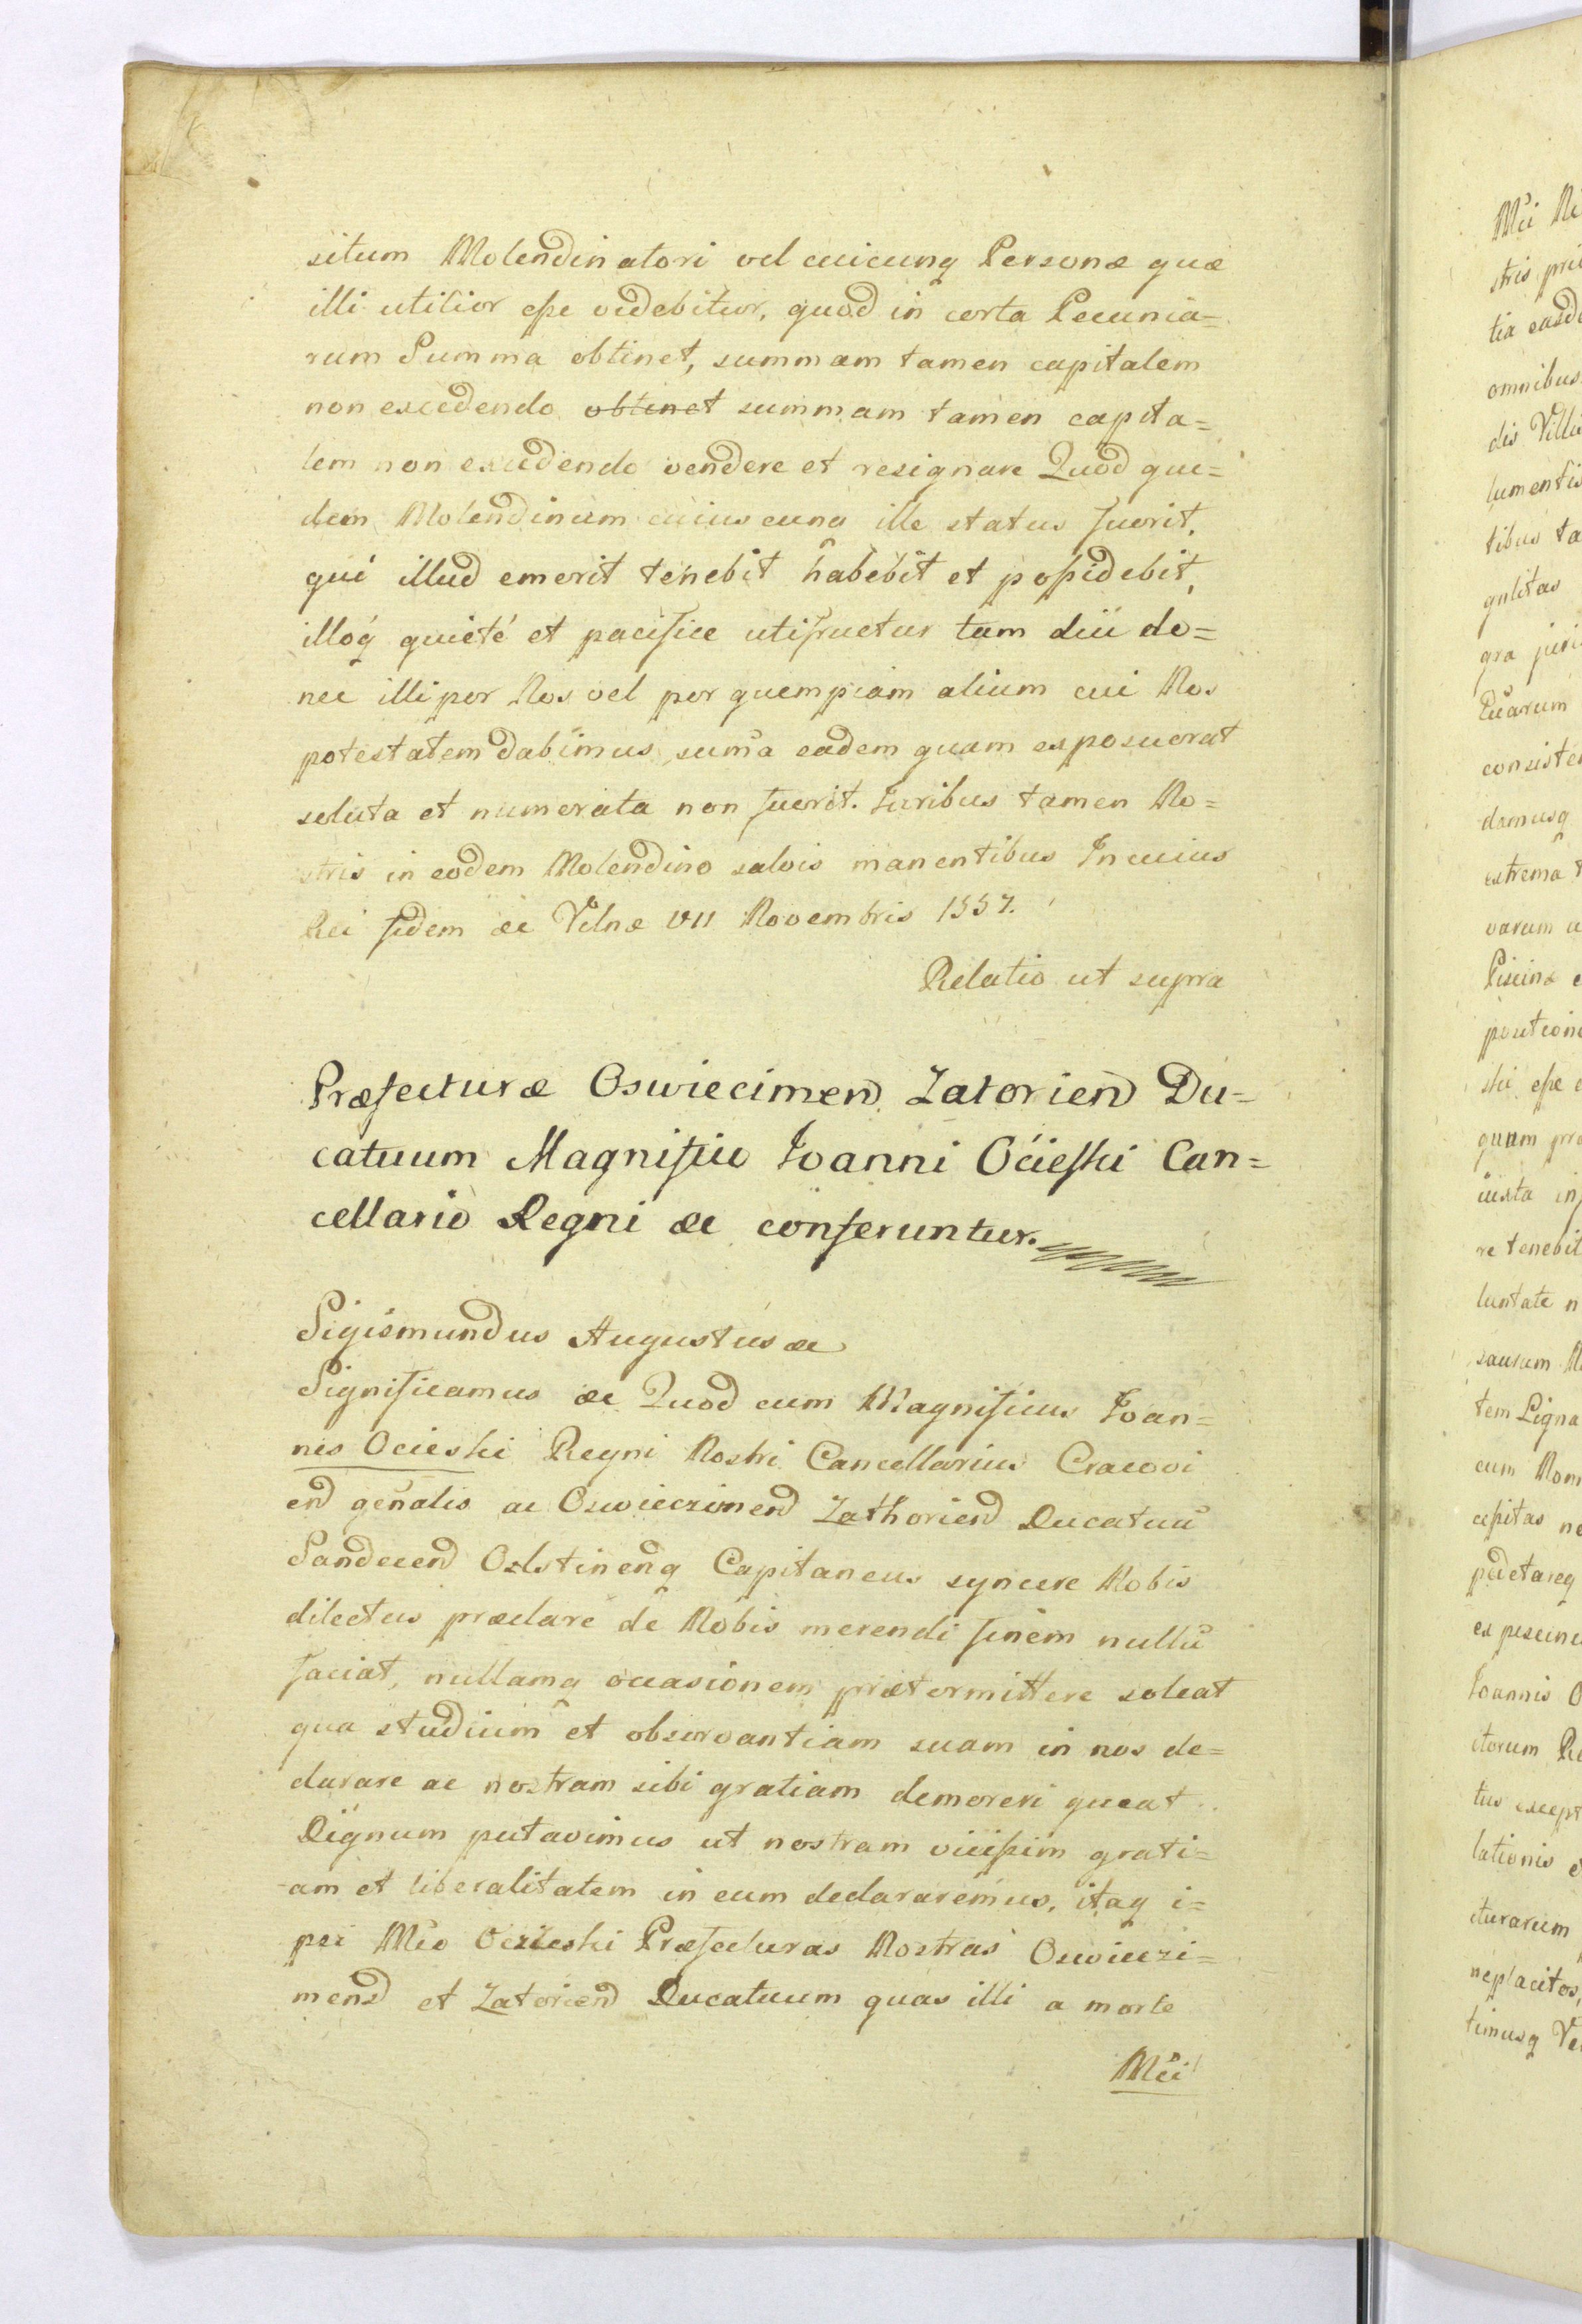 situm Molendinatori vel cuicunq Personæ quæ
illi utilior esse videbitur, quod in certa Pecunia=
rum Summa obtinet, summam tamen capitalem
non excedendo obtinet summam tamen capita=
lem non excedendo vendere et resignare Quod qui=
dem Molendinum cuiuscunq ille status fuerit,
qui illud emerit tenebit habebit et possidebit,
illoq quieté et pacifice utifruetur tam diu do=
nec illi per Nos vel per quempiam alium cui Nos
potestatem dabimus sum̃a eadem quam exposuerat
soluta et numerata non fuerit. Juribus tamen No=
stris in eodem Molendino salvis manentibus In cuius
Rei fidem &c Vilnæ VII Novembris 1557.
Relatio ut supra
Præfecturæ Oswiecimen Zatorien Du=
catuum Magnifico Ioanni Ocieski Can=
cellario Regni &c conferuntur.
Sigismundus Augustus &c
Significamus &c Quod cum Magnificus Ioan=
nes Ocieski Regni Nostri Cancellarius Cracovi
en gen̄alis ac Oswieczimen Zathorien Ducatuū
Sandecen Olstinenq Capitaneus syncere Nobis
dilectus præclare de Nobis merendi finem nullū
faciat, nullamq occasionem prætermittere soleat
qua studium et observantiam suam in nos de=
clarare ac nostram sibi gratiam demereri queat
Dignum putavimus ut nostram vicissim grati=
am et liberalitatem in eum declararemus, itaq i=
psi Mco Oczieski Præfecturas Nostras Oswieczi=
men et Zatorien Ducatuum quas illi a morte
Mci
Mci
stris
tia
omnibus
dis
lumentis
tibus
gra
Quarum
damusq
extrema
varum
Piscinæ
ski esse
quam
iuxta
re tenebit
luntate
tem Ligna
cum
Ioannis O
ctorum
lationis
cturarum
timusq